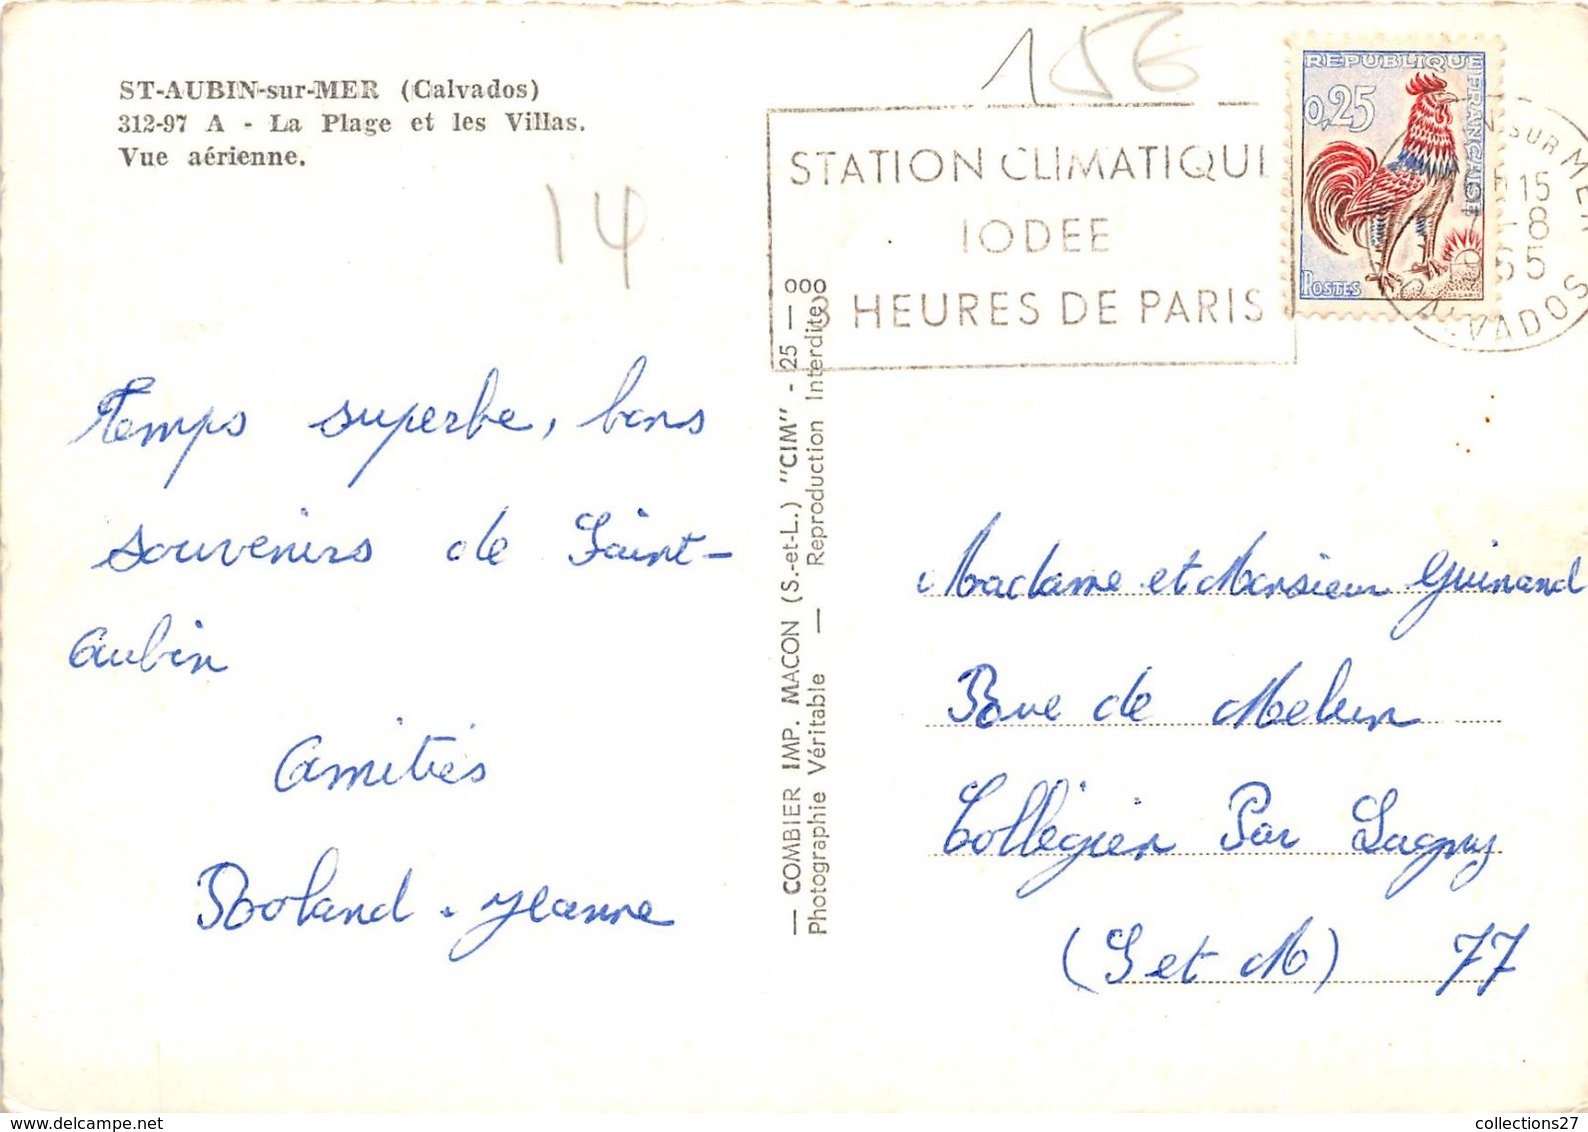 ST-AUBIN-sur-MER (Calvados)
312-97 A - La Plage et les Villas.
Vue aérienne.
14
15€
STATION CLIMATIQUE
IODEE
3 HEURES DE PARIS
REPUBLIQUE FRANCAISE
0,25
POSTES
N SUR MER
15
-8
65
CALVADOS
Temps superbe, bons
souvenirs de Saint-
Aubin
Amitiés
Roland - Jeanne
— COMBIER IMP. MACON (S.-et-L.) "CIM" - 25 — 000
Photographie Véritable — Reproduction Interdite
Madame et Monsieur Guinand
Rue de Melun
Collégien Par Lagny
(S et M) 77
collections27